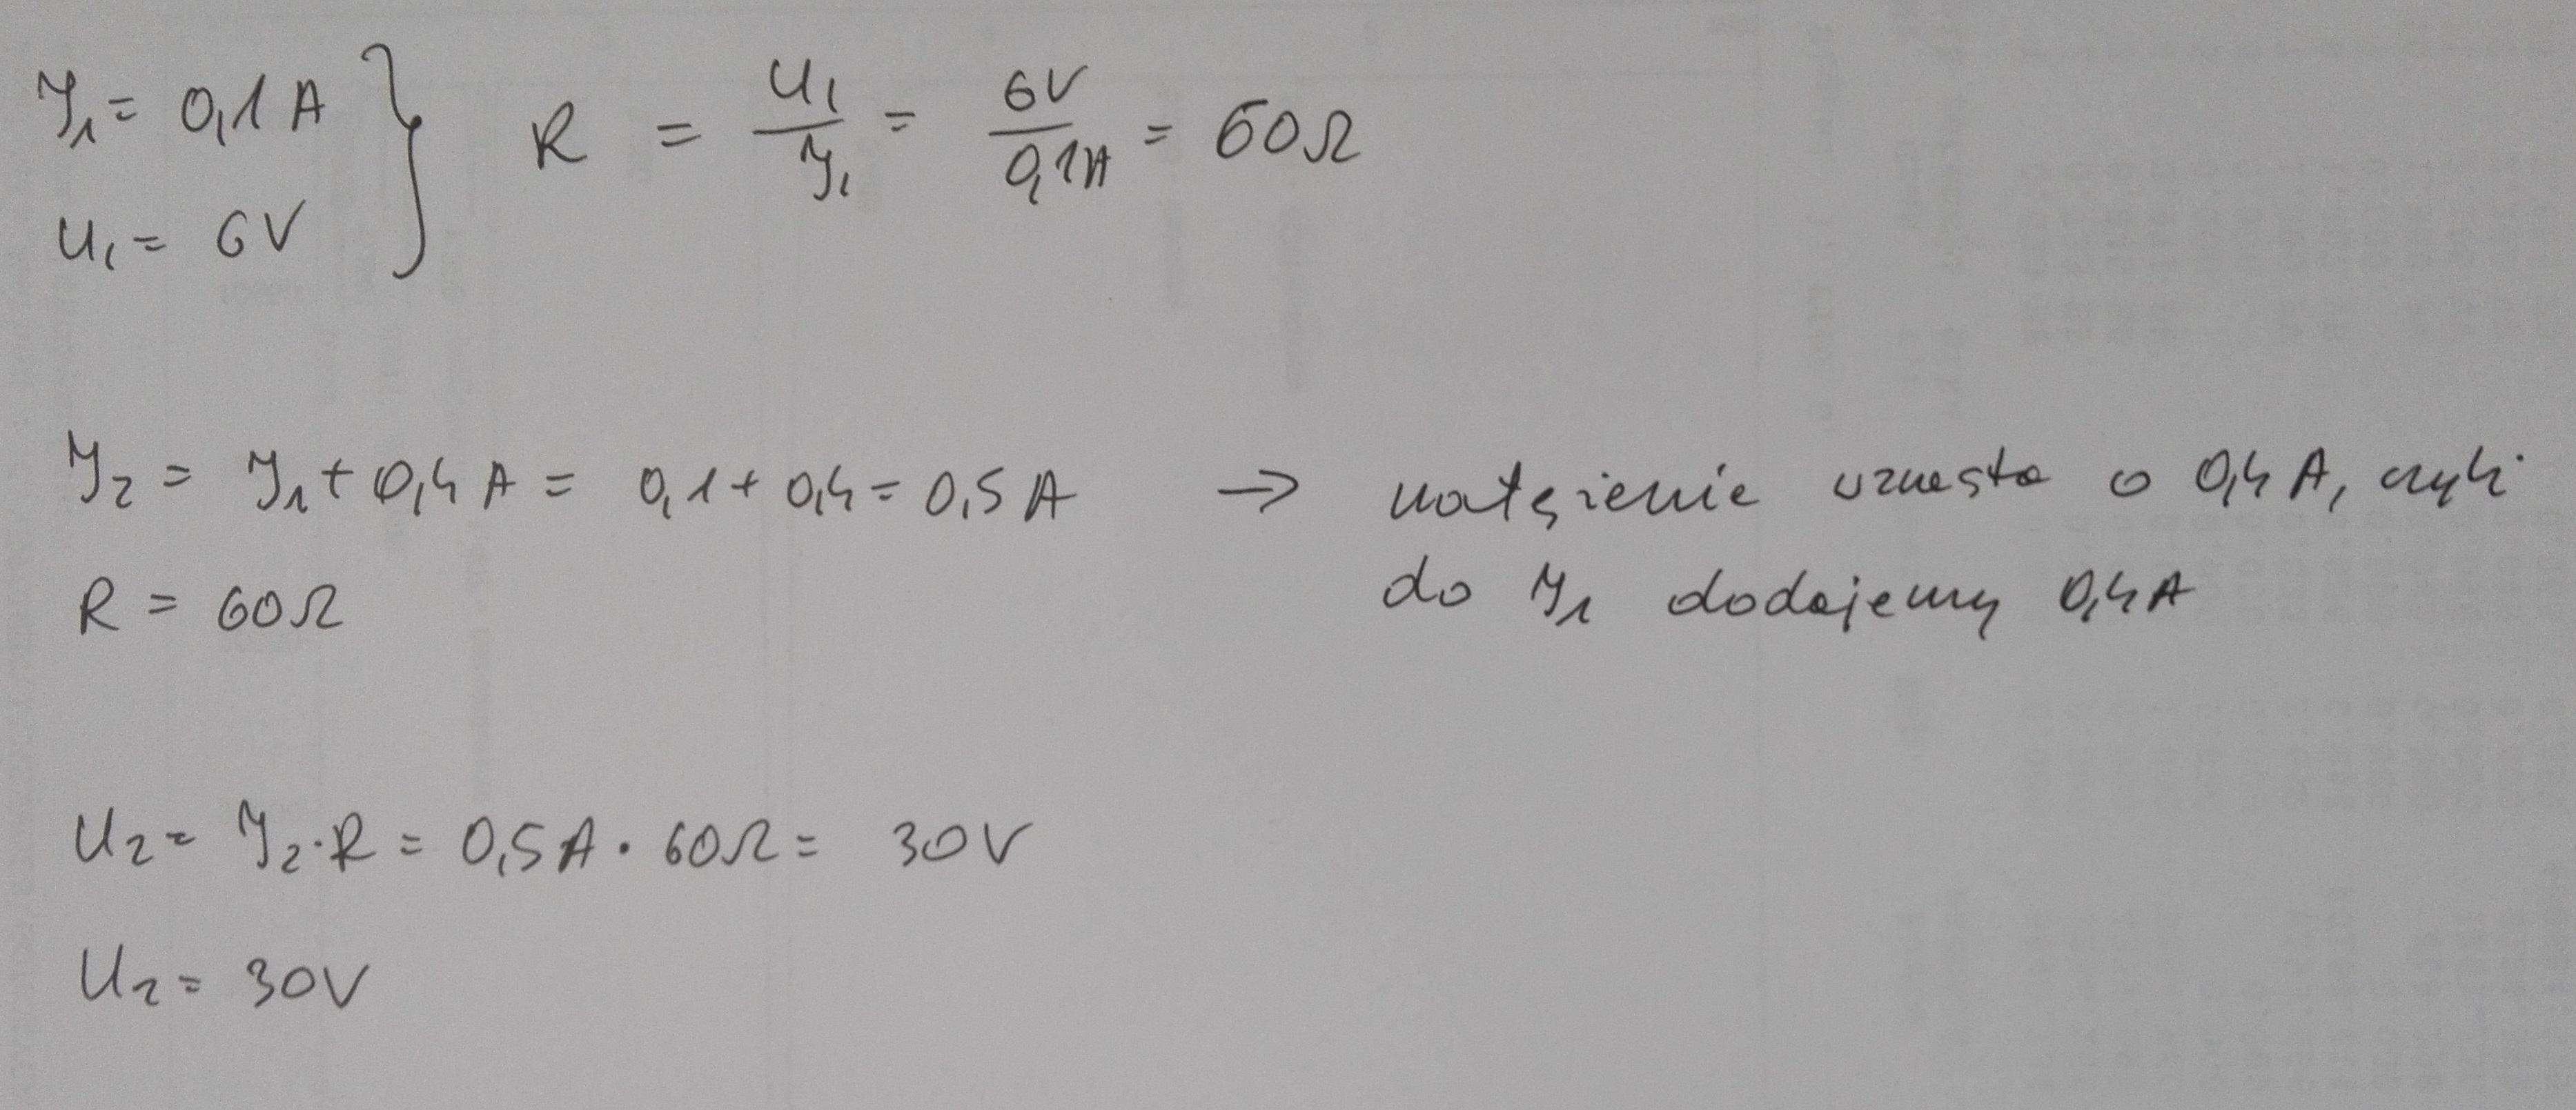 I₁ = 0,1 A } R = U₁/I₁ = 6V/0,1A = 60Ω
U₁ = 6V
I₂ = I₁ + 0,4 A = 0,1 + 0,4 = 0,5 A → natężenie wzrasta o 0,4 A, czyli
R = 60Ω do I₁ dodajemy 0,4A
U₂ = I₂·R = 0,5A · 60Ω = 30V
U₂ = 30V